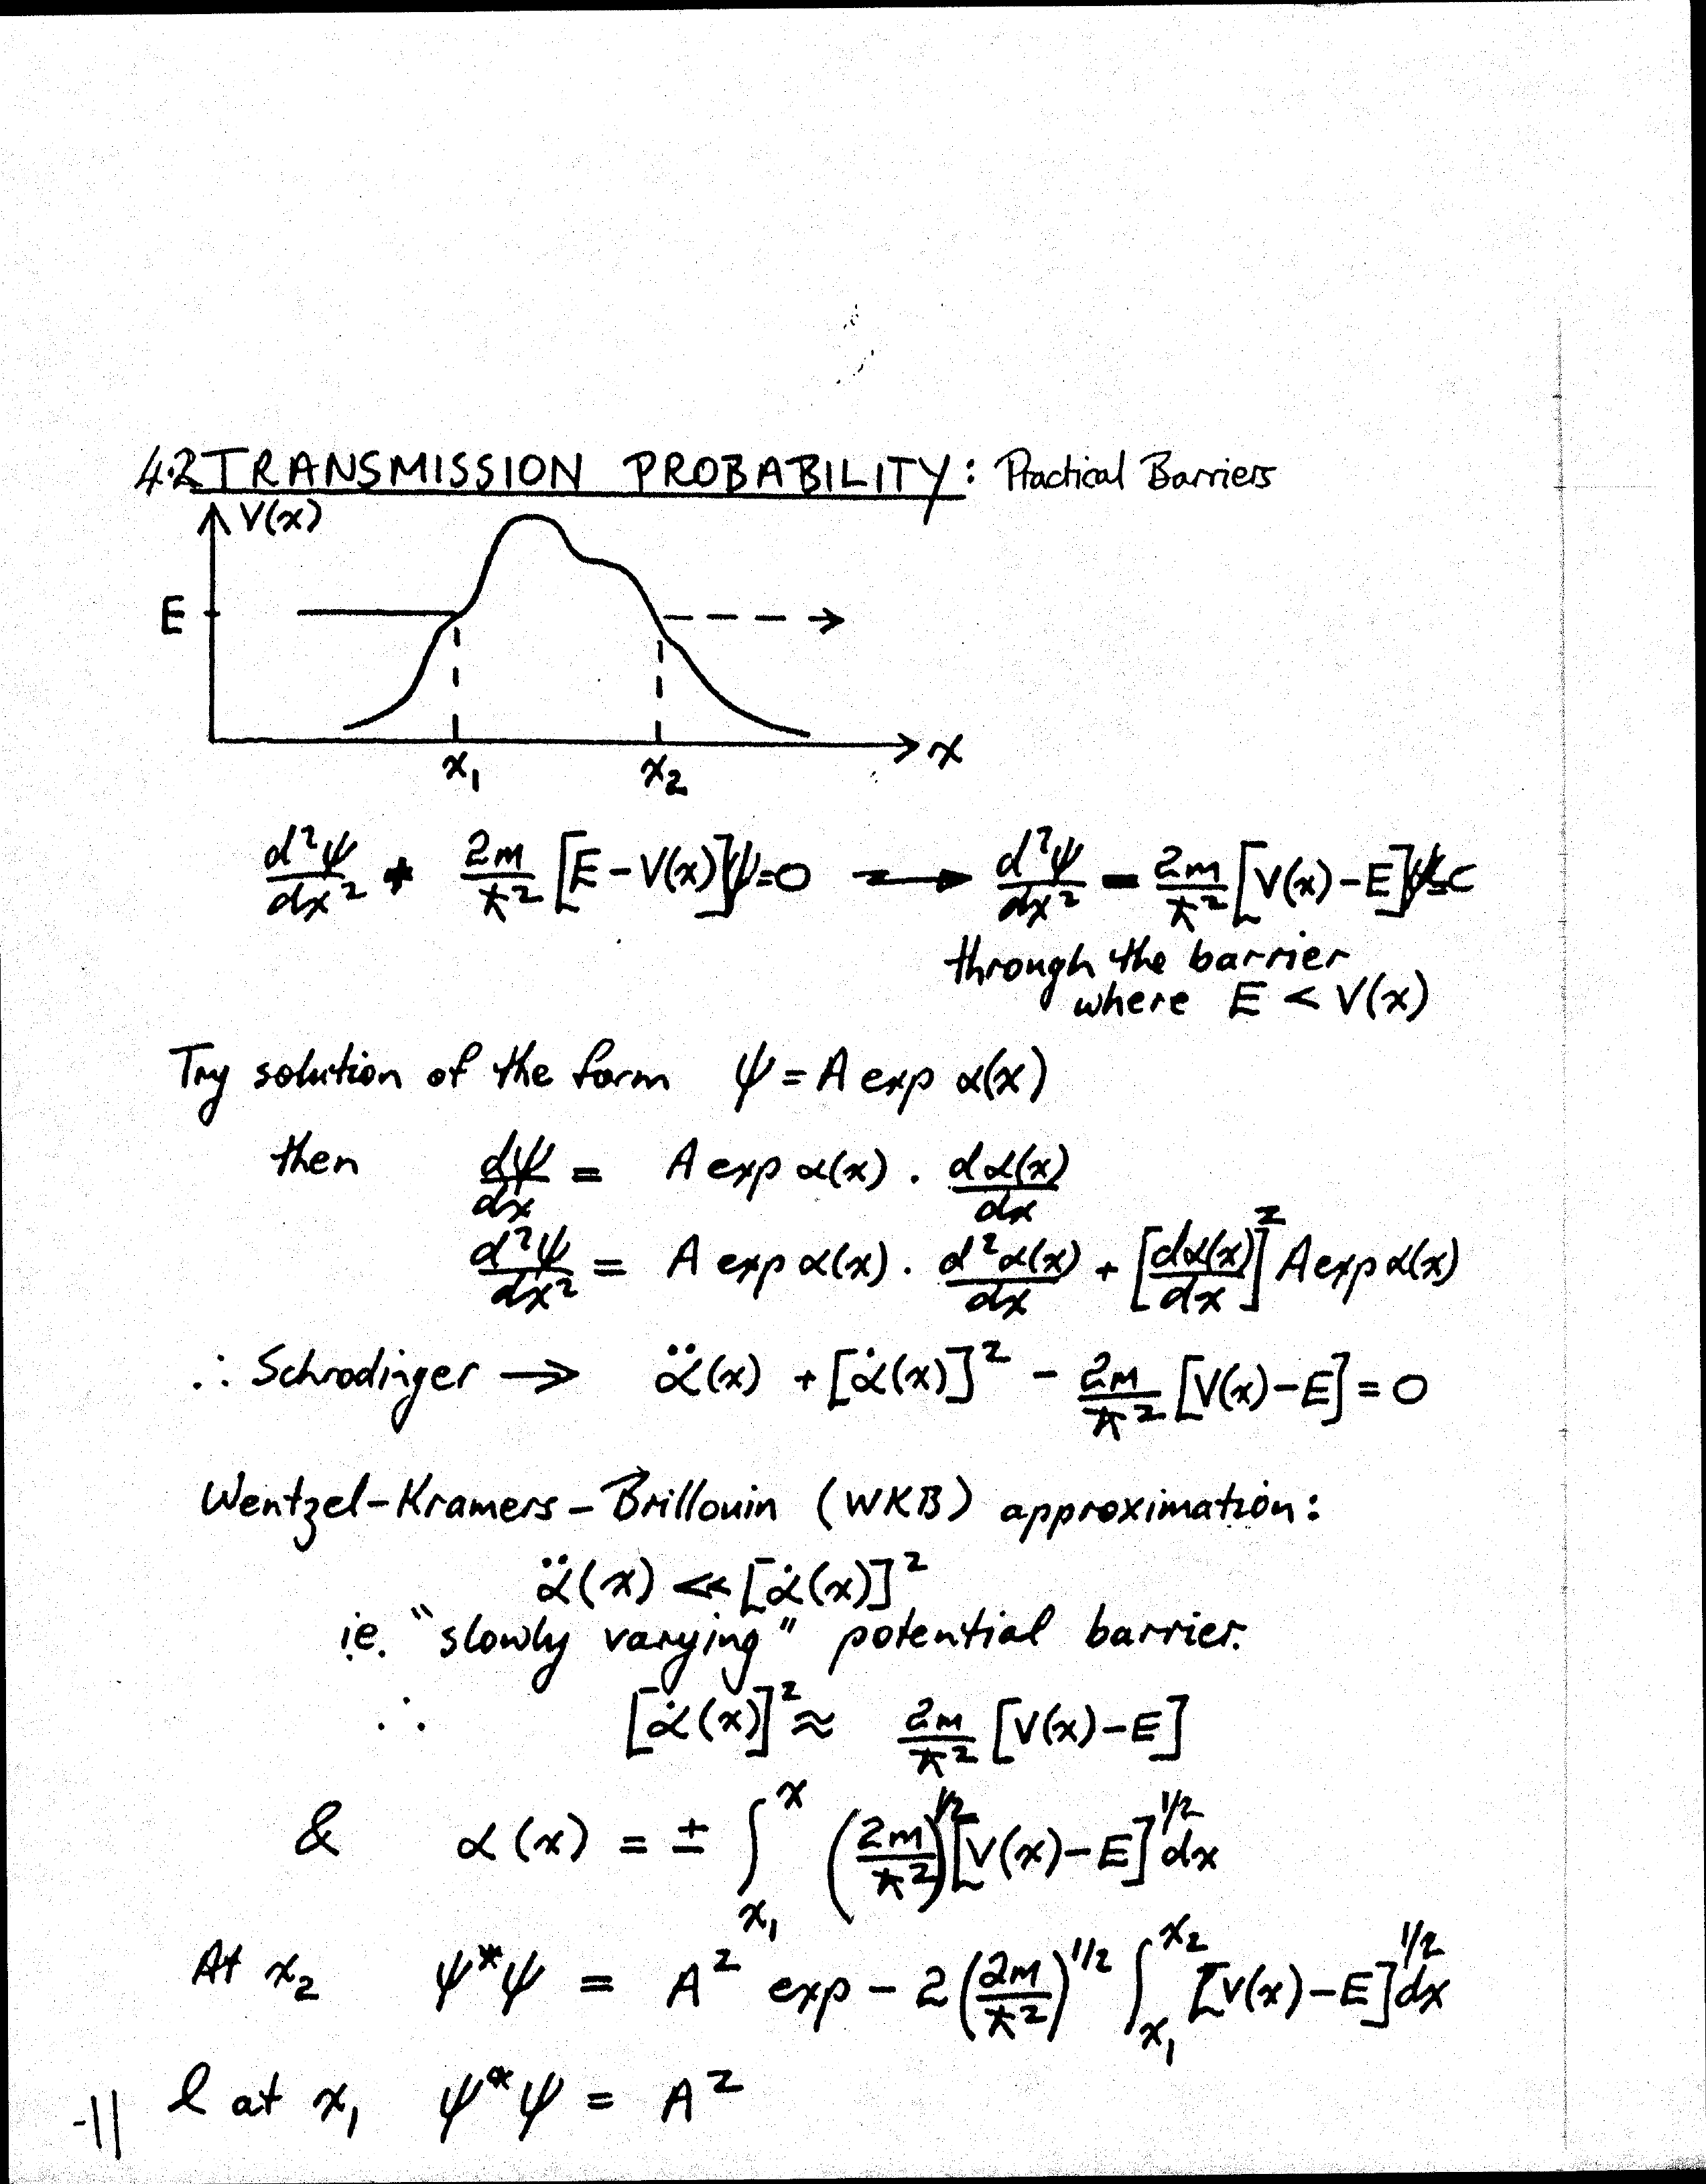 4.2 TRANSMISSION PROBABILITY: Practical Barriers
V(x)
E
x
x₁ x₂
d²ψ/dx² + 2m/ħ² [E - V(x)]ψ=0 → d²ψ/dx² - 2m/ħ² [V(x)-E]ψ=0
through the barrier
where E < V(x)
Try solution of the form ψ = A exp α(x)
then dψ/dx = A exp α(x) . dα(x)/dx
d²ψ/dx² = A exp α(x) . d²α(x)/dx + [dα(x)/dx]² A exp α(x)
∴ Schrodinger → α̈(x) + [α̇(x)]² - 2m/ħ² [V(x)-E] = 0
Wentzel-Kramers-Brillouin (WKB) approximation:
α̈(x) << [α̇(x)]²
ie. "slowly varying" potential barrier.
∴ [α̇(x)]² ≈ 2m/ħ² [V(x)-E]
& α(x) = ± ∫_{x₁}^{x} (2m/ħ²)^{1/2} [V(x)-E]^{1/2} dx
At x₂ ψ*ψ = A² exp - 2(2m/ħ²)^{1/2} ∫_{x₁}^{x₂} [V(x)-E]^{1/2} dx
& at x₁ ψ*ψ = A²
-11